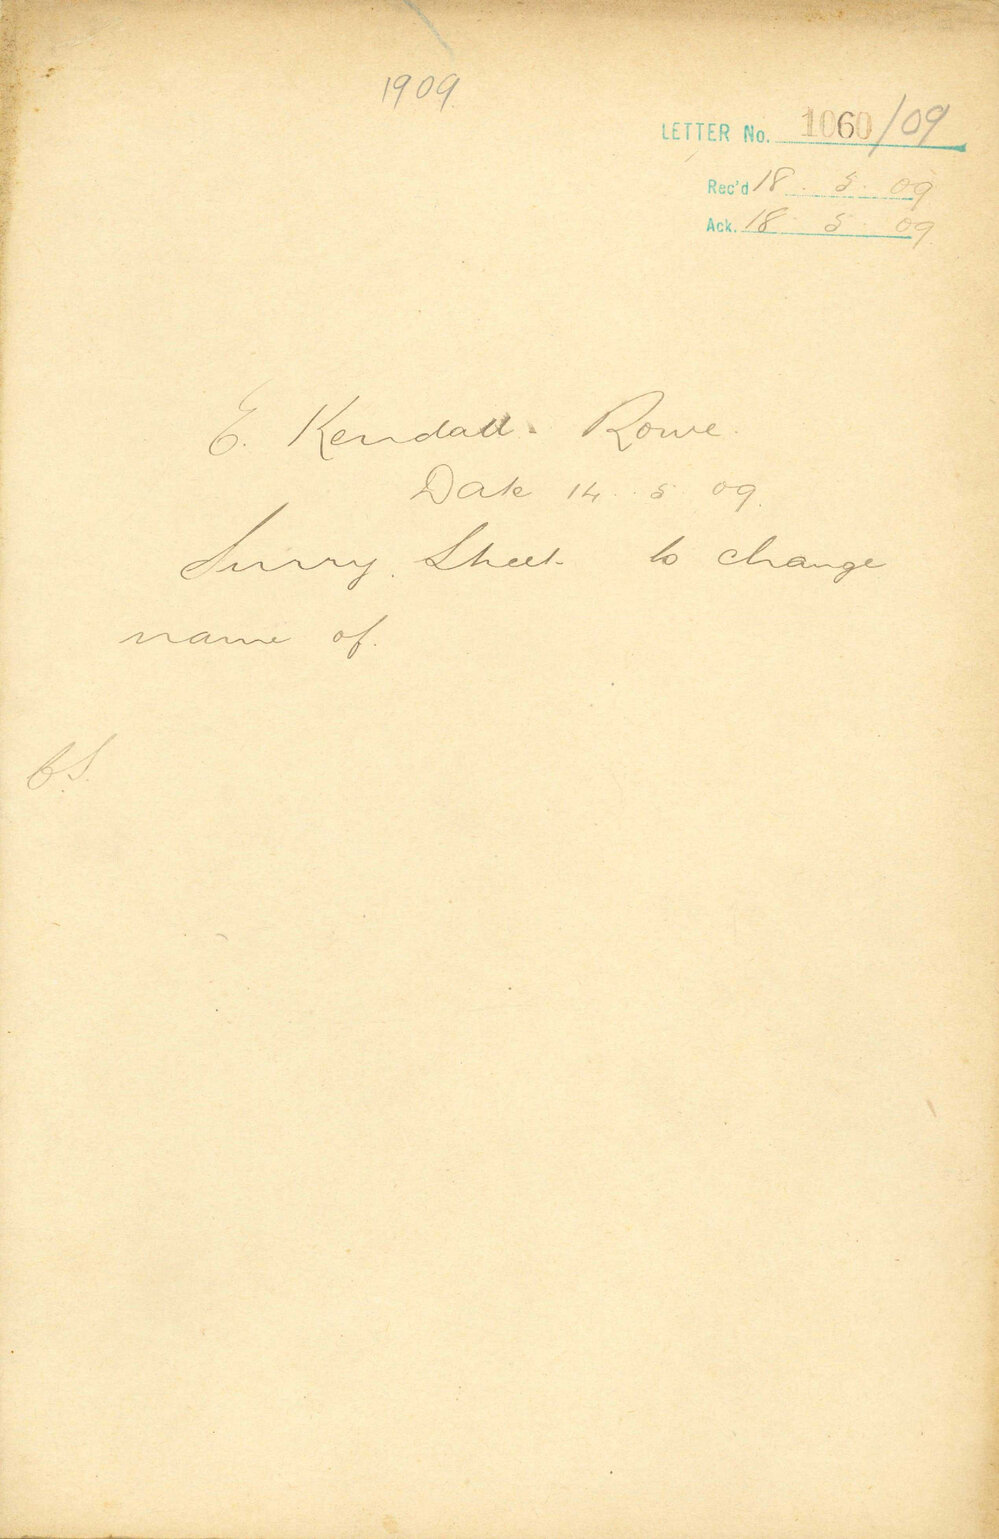 1909.
LETTER No. 1060/09
Rec'd 18. 5. 09
Ack. 18 5 09
E. Kendall. Rowe.
Date 14. 5 09.
Surry. Street. to change
name of.